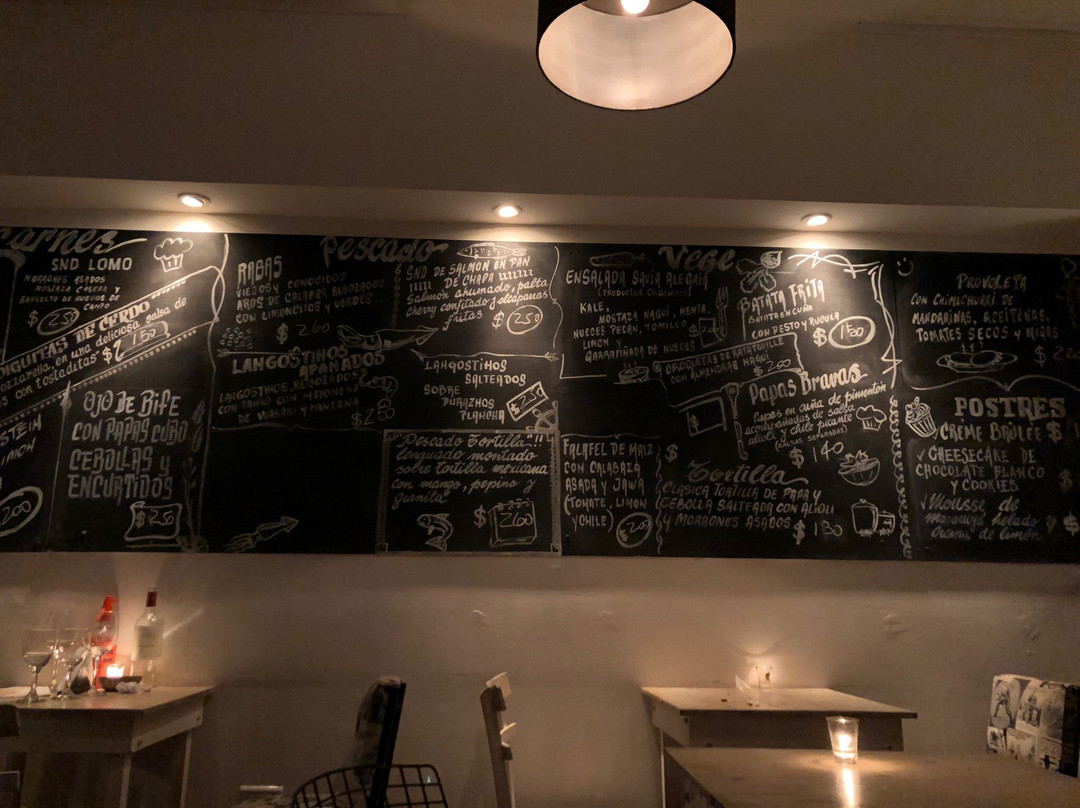 Carnes
SND LOMO
MORRONES ASADOS
MOSTAZA CASERA Y
REVUELTO DE HUEVOS DE
CAMPO
DIGUITAS DE CERDO
OZZARELLA, en una deliciosa salsa de
con tostaditas $
150
OJO DE BIFE
CON PAPAS CUBO
CEBOLLAS Y
ENCURTIDOS
$250
200
Pescado
RABAS
VIEJOS Y CONOCIDOS
AROS DE CALAMAR REBOZADOS
CON LIMONCITOS Y VERDES..
$ 260
LANGOSTINOS
APANADOS
LANGOSTINOS REBOZADOS
DE WASABI Y MANZANA
SND DE SALMON EN PAN
DE CHAPA
Salmón ahumado, palta
cherry confitado y alcaparras
fritas
$ 250
LANGOSTINOS
SALTEADOS
SOBRE
DURAZNOS
PLANCHA
$250
"Pescado Tortilla"!!
lenguado montado
sobre tortilla mexicana
con mango, pepino y
granita
$ 260
Vege
ENSALADA SAVIA ALEGRIA
(PRODUCTOS ORGANICOS)
KALE,
MOSTAZA NAQUI, MENTA,
NUECES PECAN, TOMILLO
LIMON Y
GARRAPIÑADA DE NUECES
BATATA FRITA
BATATAS EN CUÑA
CON PESTO Y RUCULA
$ 150
CROQUETAS DE RATATOUILLE
$
Papas Bravas
papas en cuña de pimentón
acompañadas de salsa
alioli y chile picante
(SALSAS SEPARADAS)
$ 140
FALAFEL DE MAIZ
CON CALABAZA
ASADA Y JAWA
(TOMATE, LIMON
Y CHILE)
$ 200
Tortilla
CLASICA TORTILLA DE PAPA Y
CEBOLLA SALTEADA CON ALIOLI
Y MORRONES ASADOS
$ 130
PROVOLETA
CON CHIMICHURRI DE
MANDARINAS, ACEITUNAS,
TOMATES SECOS Y MIGAS
POSTRES
CREME BRÛLÉE $
CHEESECAKE DE
CHOCOLATE BLANCO
Y COOKIES
Mousse de
maracuyá helado
crema de limón